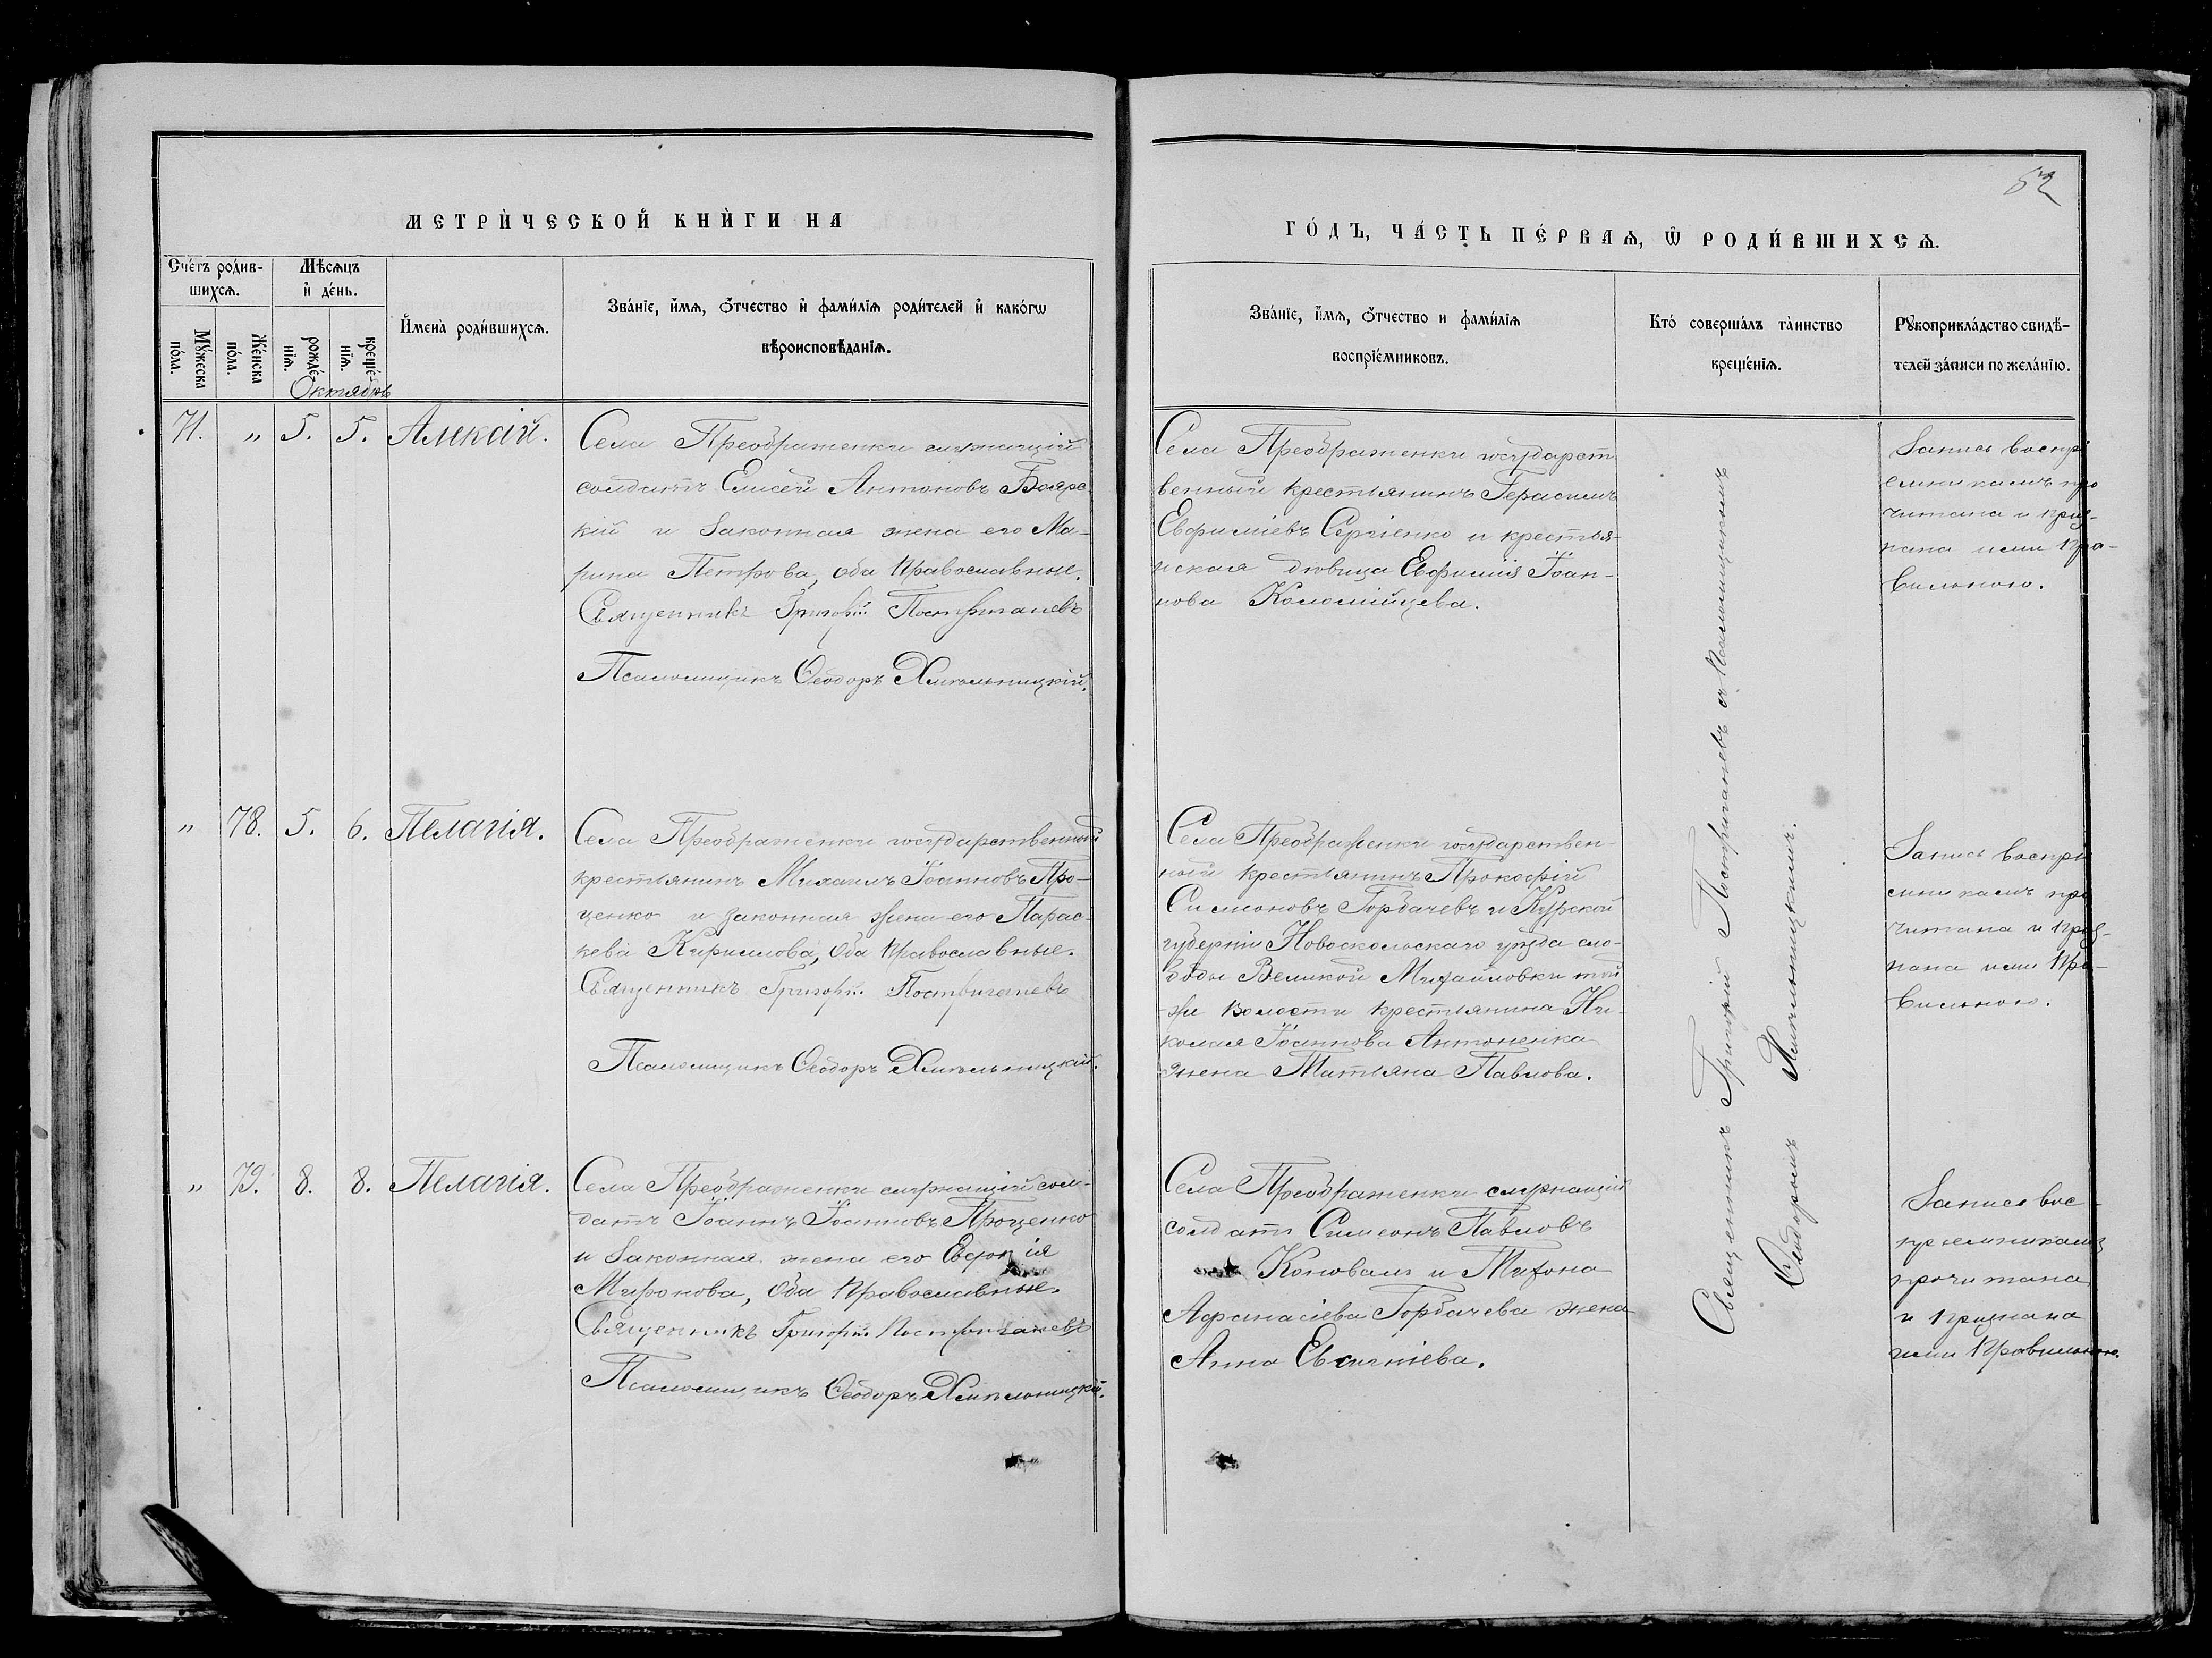 52
МЕТРИ́ЧЕСКОЙ КНИ́ГИ НА
ГО́ДЪ, ЧА́СТЬ ПЕ́РВАѦ, Ѡ҆ РОДИ́ВШИХСѦ.
Сче́тъ роди́в-
шихсѧ.
Мѣ́сѧцъ
и҆ де́нь.
Мꙋ́жеска
по́ла.
Же́нска
по́ла.
рожде́-
нїѧ.
креще́-
нїѧ.
И҆мена̀ роди́вшихсѧ.
Зва́нїе, и҆́мѧ, о҆́тчество и҆ фами́лїѧ роди́телей и҆ како́гѡ
вѣроисповѣ́данїѧ.
Зва́нїе, и҆́мѧ, о҆́тчество и фами́лїѧ
воспрїе́мниковъ.
Кто́ соверша́лъ та́инство
креще́нїѧ.
Рꙋкоприкла́дство свидѣ́-
телей за́писи по жела́нїю.
Октябрь
71. „ 5. 5. Алексій.
Села Преображенки служащій
солдатъ Елисей Антоновъ Боярс-
кій и законная жена его Ма-
рина Петрова, оба Православные.
Священникъ Григорій Постригачевъ
Псаломщикъ Ѳеодоръ Хмѣльницкій.
Села Преображенки государст
венный крестьянинъ Герасимъ
Евфиміевъ Сергіенко и крестья-
нская дѣвица Евфимія Іоан-
нова Коломійцева.
Запись воспрі
емникамъ про
читана и приз-
нана ими Пра-
вильною.
„ 78. 5. 6. Пелагія.
Села Преображенки государственный
крестьянинъ Михаилъ Іоанновъ Про-
ценко и законная жена его Парас-
кева Кириллова, оба Православные.
Священникъ Григорій Постригачевъ
Псаломщикъ Ѳеодоръ Хмѣльницкій.
Села Преображенки государствен-
ный крестьянинъ Прокофій
Симоновъ Горбачевъ и Курской
губерніи Новоскольскаго уѣзда сло-
боды Великой Михайловки той
же волости крестьянина Ни-
колая Іоаннова Антоненка
жена Татьяна Павлова.
Запись воспрі
емникамъ про
читана и приз-
нана ими Пра-
вильною.
„ 79. 8. 8. Пелагія.
Села Преображенки служащій сол-
датъ Іоаннъ Іоанновъ Проценко
и законная жена его
Миронова, оба Православные.
Священникъ Григорій Постригачевъ
Псаломщикъ Ѳеодоръ Хмѣльницкій.
Села Преображенки служащій
солдатъ Симеонъ Павловъ
Коновалъ и Тихона
Афанасіева Горбачева жена
Анна Евсигніева.
Запись вос-
пріемникамъ
прочитана
и признана
ими Правильною.
Священникъ Григорій Постригачевъ съ Псаломщикомъ
Ѳеодоромъ Хмѣльницкимъ.